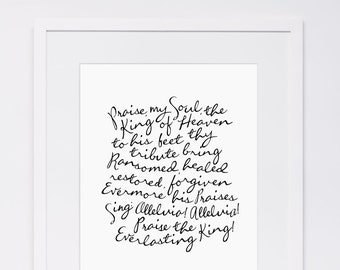 Praise, my Soul, the
King of Heaven
to his feet thy
tribute bring
Ransomed, healed
restored, forgiven
Evermore his Praises
Sing Alleluia! Alleluia!
Praise the King!
Everlasting King!